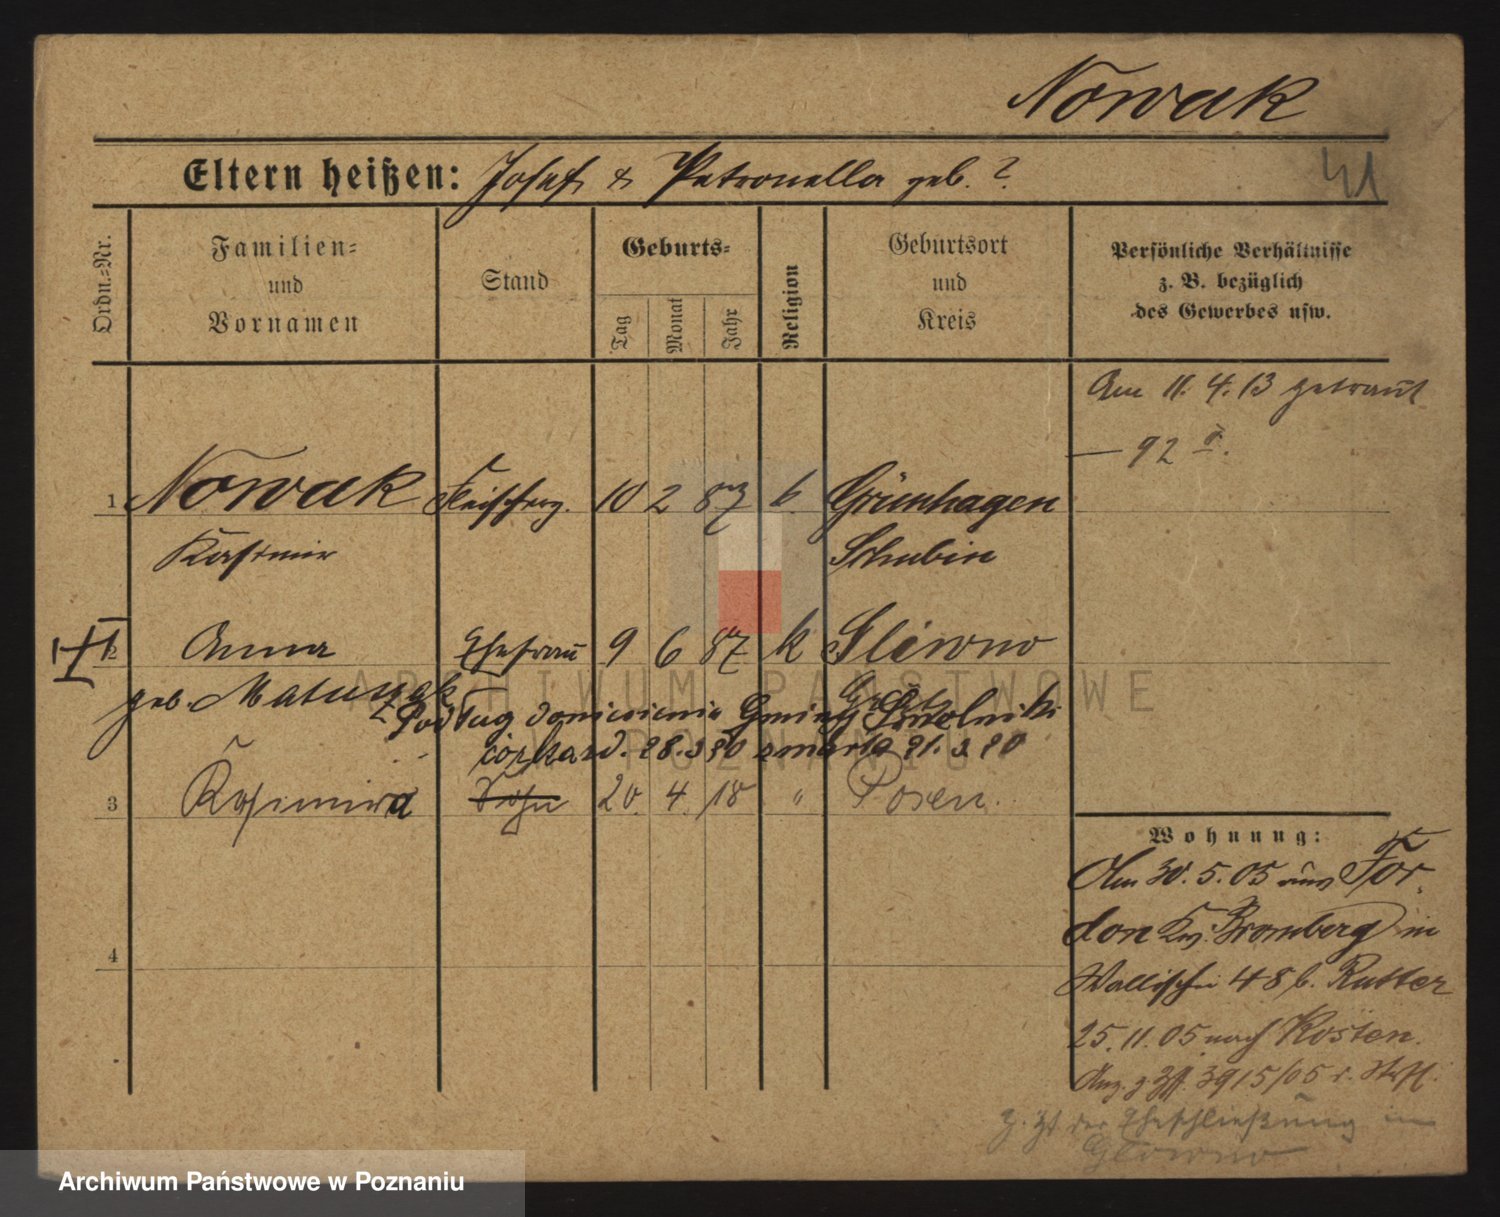 Nowak
Eltern heißen: Josef & Petronella geb. ?
41
Ordn.-Nr.
Familien- und Vornamen
Stand
Geburts-
Tag
Monat
Jahr
Religion
Geburtsort und Kreis
Persönliche Verhältnisse z. B. bezüglich des Gewerbes usw.
Am 11. 4. 13 getraut
— 92
1 Nowak 10 2 87 k. Grünhagen
Kasimir Schubin
2 Anna Ehefrau 9 6 87 k Glowno
geb. Matuszak
Podług doniesienia Gminy
córka 28. 3 20 zmarła 21. 3 20
3 Kasimira Sohn 20. 4. 18 " Posen.
4
Wohnung:
Am 30. 5. 05 aus For-
don Kr. Bromberg in
Wallischei 48 b. Rutter
25. 11. 05 nach Kosten.
3915/05
z. Zt der Eheschließung in
Glowno
ARCHIWUM PAŃSTWOWE
W POZNANIU
Archiwum Państwowe w Poznaniu